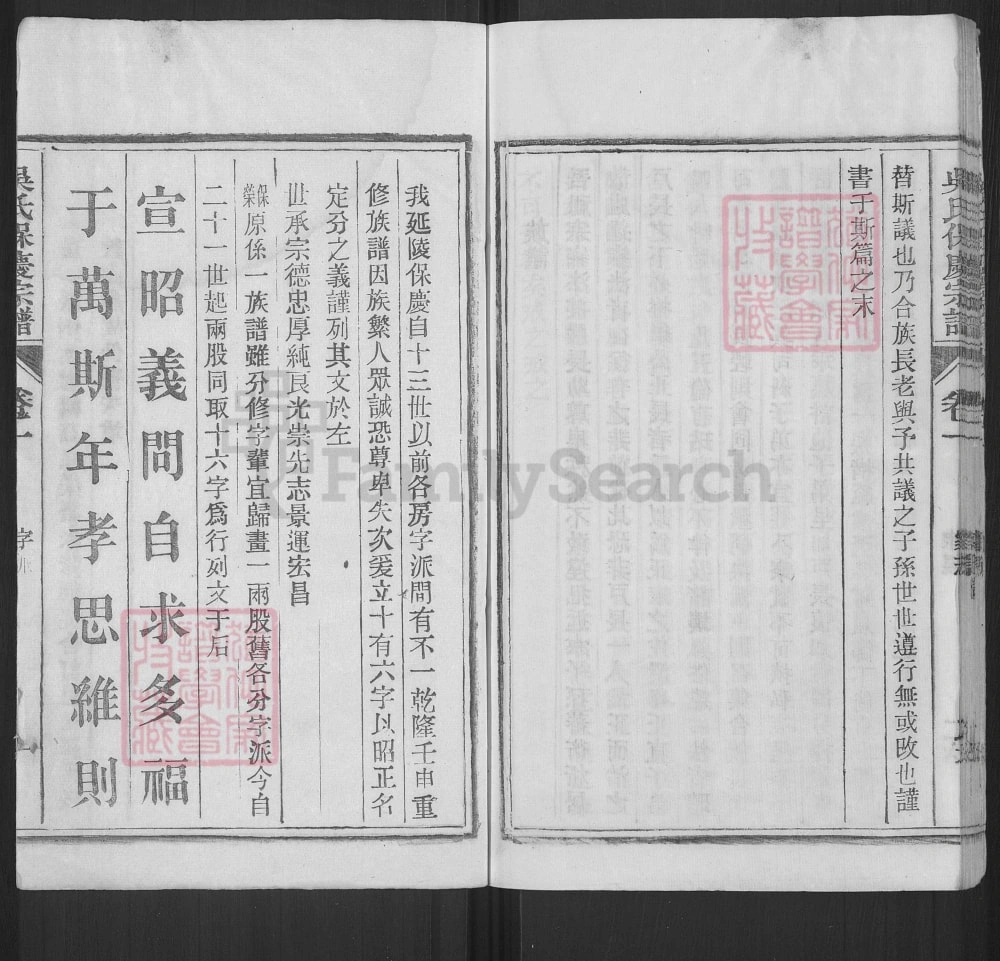 吳氏保慶宗譜 卷一
替斯議也乃合族長老與予共議之子孫世世遵行無或改也謹
書于斯篇之末
我延陵保慶自十三世以前各房字派間有不一乾隆壬申重
修族譜因族繁人眾誠恐尊卑失次爰立十有六字以昭正名
定分之義謹列其文於左
世承宗德忠厚純良光崇先志景運宏昌
保榮原係一族譜雖分修字輩宜歸畫一兩股舊各分字派今自
二十一世起兩股同取十六字爲行列文于后
宣昭義問自求多福
于萬斯年孝思維則
吳氏保慶宗譜 卷一 字派
FamilySearch